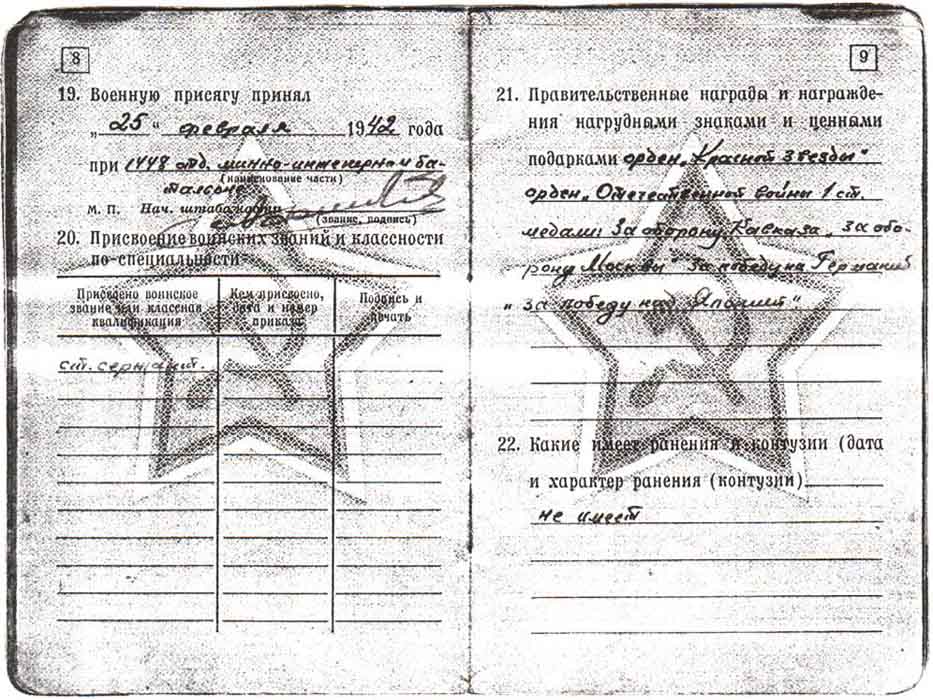 8
19. Военную присягу принял
„25" февраля 1942 года
при 1448 отд. минно-инженерном ба-
(наименование части)
тальоне
М. П. Нач. штаба части
(звание, подпись)
20. Присвоение воинских званий и классности
по специальности
Присвоено воинское звание или классная квалификация
Кем присвоено, дата и номер приказа
Подпись и печать
ст. сержант.
9
21. Правительственные награды и награжде-
ния нагрудными знаками и ценными
подарками орден „Красной звезды"
орден „Отечественной войны 1 ст.
медали За оборону Кавказа „за обо-
рону Москвы" за победу на Германией
„за победу над Японией"
22. Какие имеет ранения и контузии (дата
и характер ранения (контузии)
не имеет